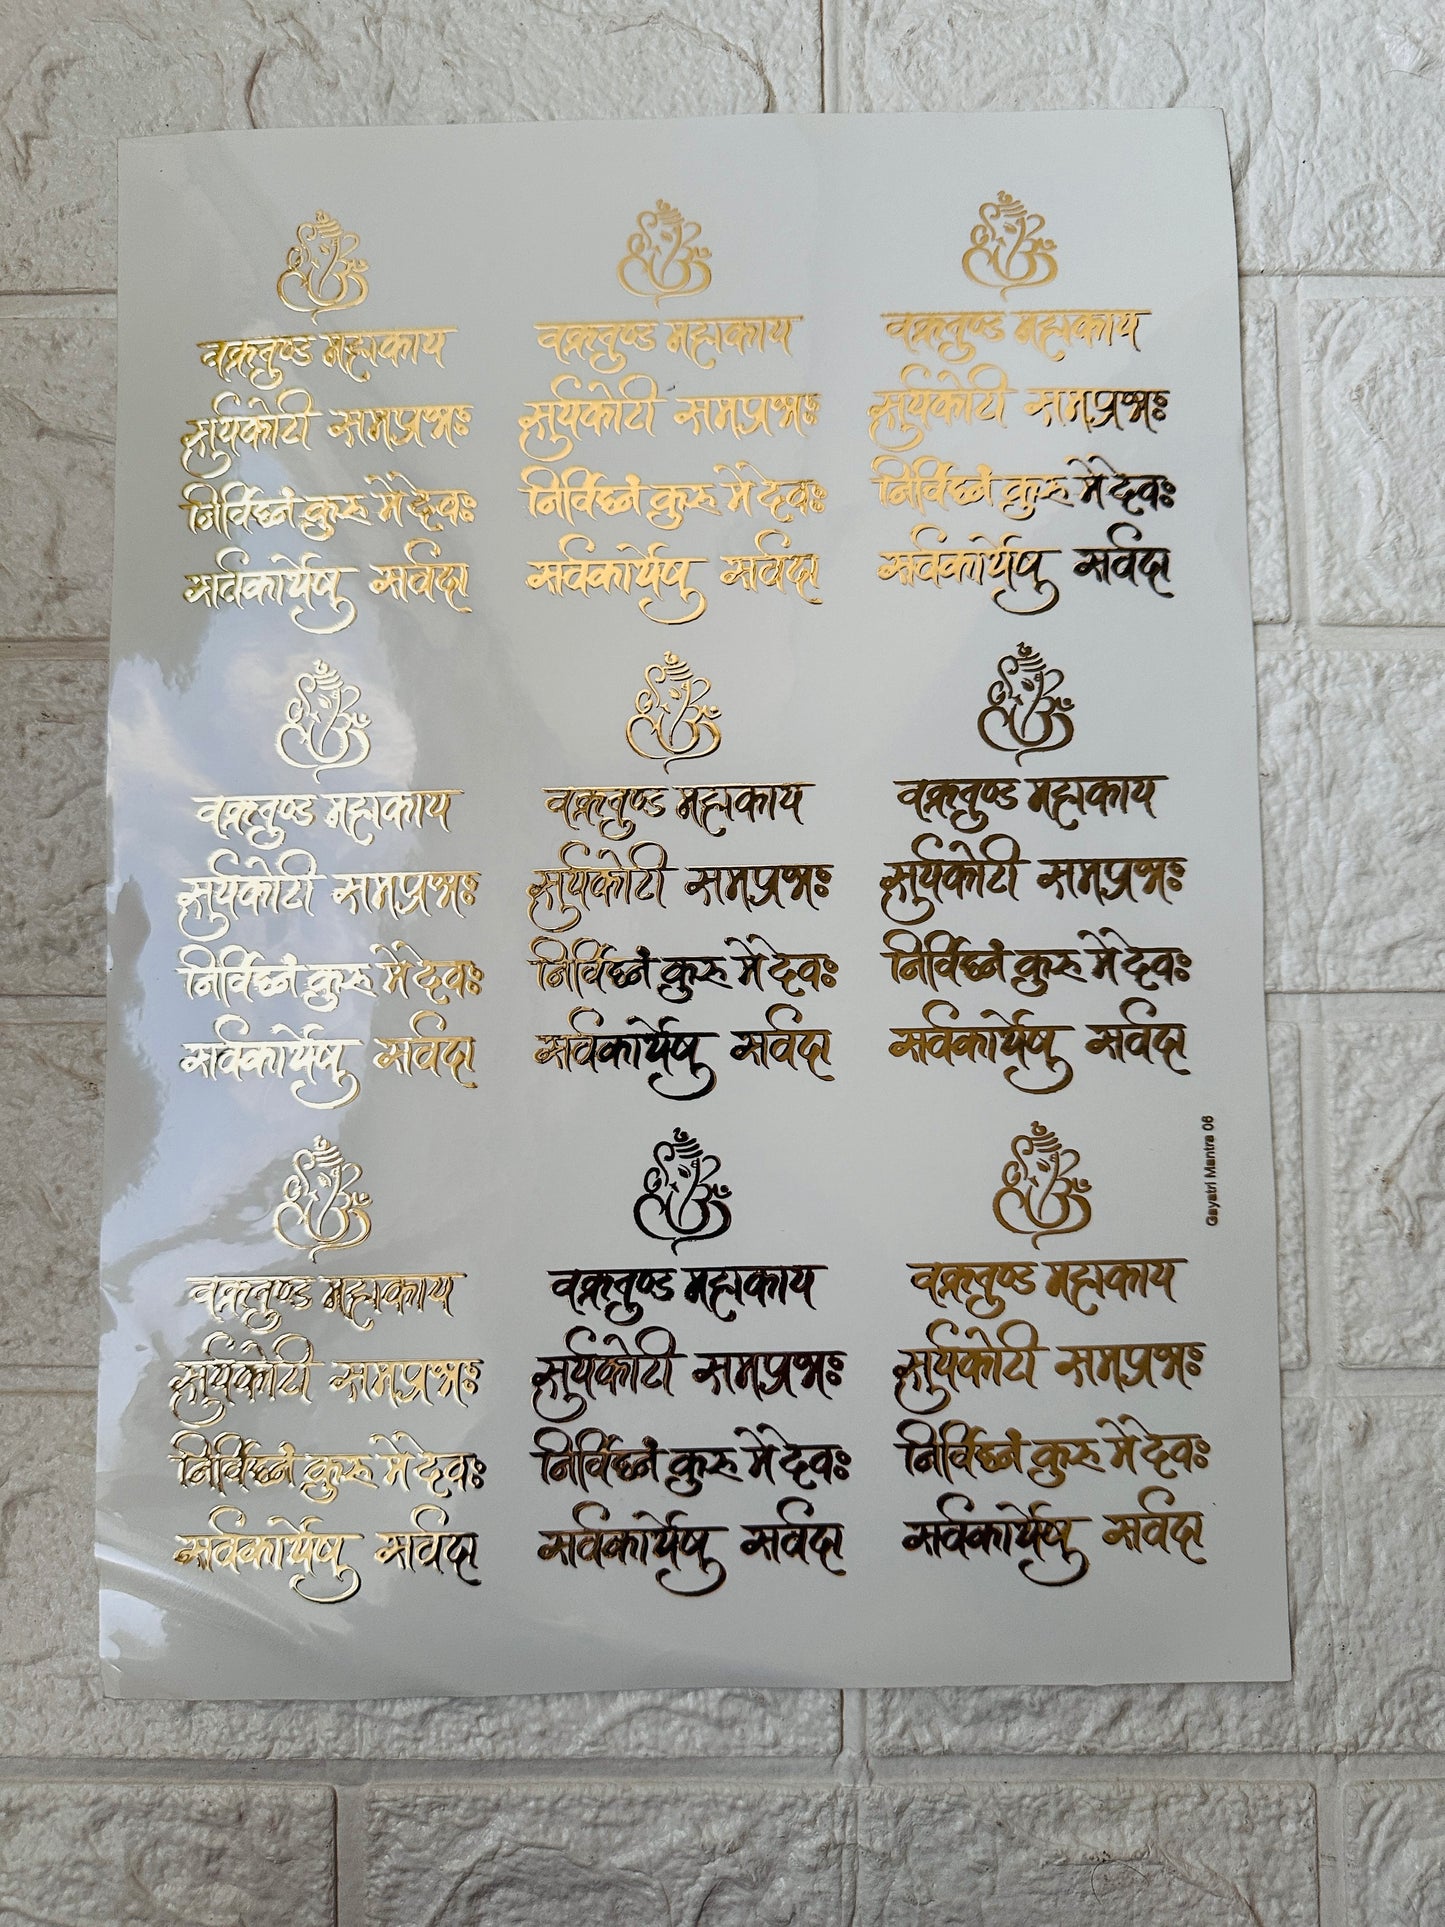 वक्रतुण्ड महाकाय
सुर्यकोटी समप्रभः
निर्विघ्नं कुरु मे देवः
सर्वकार्येषु सर्वदा
वक्रतुण्ड महाकाय
सुर्यकोटी समप्रभः
निर्विघ्नं कुरु मे देवः
सर्वकार्येषु सर्वदा
वक्रतुण्ड महाकाय
सुर्यकोटी समप्रभः
निर्विघ्नं कुरु मे देवः
सर्वकार्येषु सर्वदा
वक्रतुण्ड महाकाय
सुर्यकोटी समप्रभः
निर्विघ्नं कुरु मे देवः
सर्वकार्येषु सर्वदा
वक्रतुण्ड महाकाय
सुर्यकोटी समप्रभः
निर्विघ्नं कुरु मे देवः
सर्वकार्येषु सर्वदा
वक्रतुण्ड महाकाय
सुर्यकोटी समप्रभः
निर्विघ्नं कुरु मे देवः
सर्वकार्येषु सर्वदा
वक्रतुण्ड महाकाय
सुर्यकोटी समप्रभः
निर्विघ्नं कुरु मे देवः
सर्वकार्येषु सर्वदा
वक्रतुण्ड महाकाय
सुर्यकोटी समप्रभः
निर्विघ्नं कुरु मे देवः
सर्वकार्येषु सर्वदा
वक्रतुण्ड महाकाय
सुर्यकोटी समप्रभः
निर्विघ्नं कुरु मे देवः
सर्वकार्येषु सर्वदा
Gayatri Mantra 06